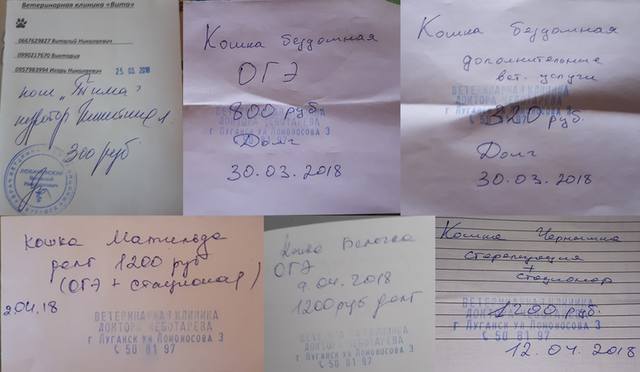 Ветеринарная клиника «Вита»
0667629827 Виталий Николаевич
0990217670 Виктория
0957983994 Игорь Николаевич
25.03.2018
кот „Тима"
куратор
300 руб
Кошка бездомная
ОГЭ
800 руб.
ВЕТЕРИНАРНАЯ КЛИНИКА
ДОКТОРА ЧЕБОТАРЕВА
г Луганск ул Ломоносова 3
Долг
30.03.2018
Кошка бездомная
дополнительные
вет. услуги
ВЕТЕРИНАРНАЯ КЛИНИКА
ДОКТОРА ЧЕБОТАРЕВА
320 руб.
г Луганск ул Ломоносова 3
Долг
30.03.2018
Кошка Матильда
долг 1200 руб
(ОГЭ + стационар)
2.04.18
ВЕТЕРИНАРНАЯ КЛИНИКА
ДОКТОРА ЧЕБОТАРЕВА
г Луганск ул Ломоносова 3
50 81 97
Кошка Белочка
ОГЭ
9.04.2018
1200 руб долг
ВЕТЕРИНАРНАЯ КЛИНИКА
ДОКТОРА ЧЕБОТАРЕВА
г Луганск ул Ломоносова 3
50 81 97
Кошка Чернышка
стерилизация
+
стационар
ВЕТЕРИНАРНАЯ КЛИНИКА
1200 руб.
ДОКТОРА ЧЕБОТАРЕВА
г Луганск ул Ломоносова 3
50 81 97
12.04.2018